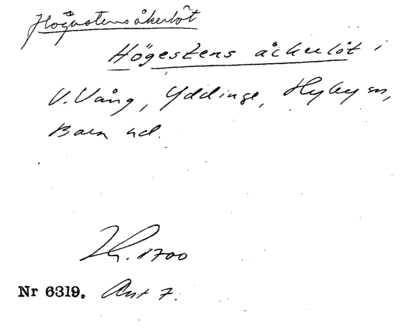 Högestensåkerlöt
Högestens åkerlöt i
V. Vång, Yddinge, Hyby sn,
Bara hd.
Lk. 1700
Nr 6319. Ant 7.